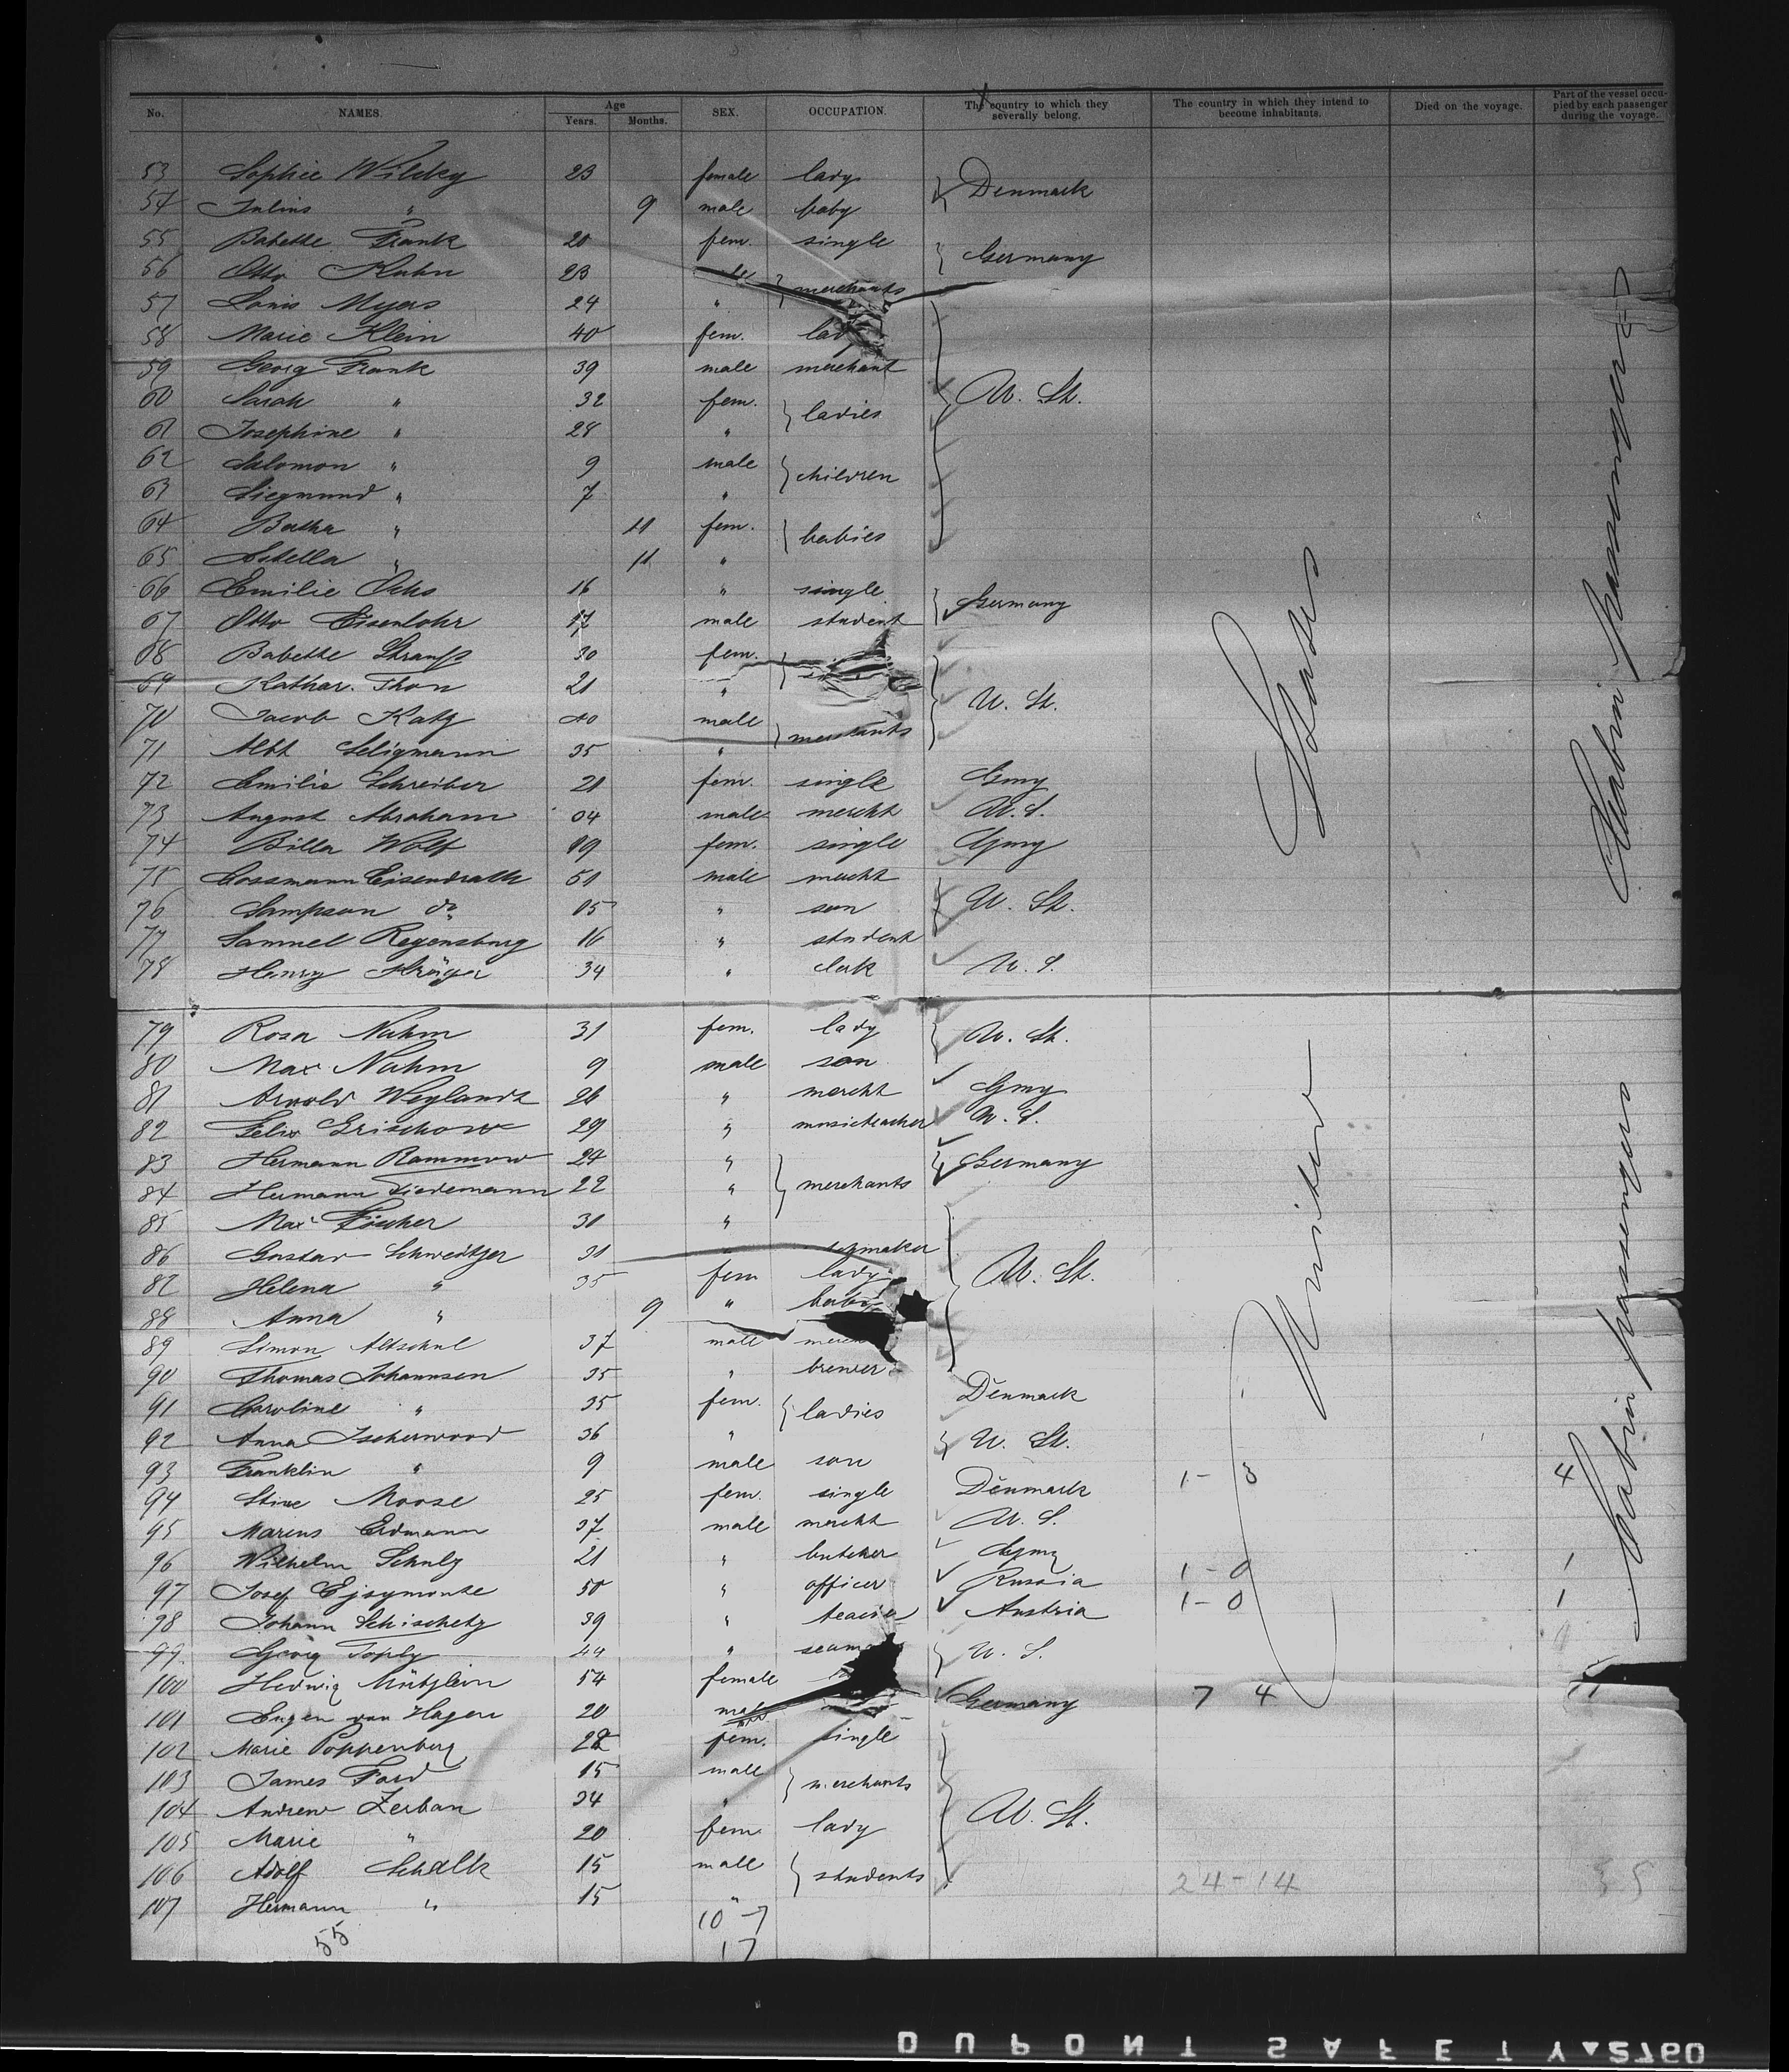 No. NAMES. Age Years. Months. SEX. OCCUPATION. The country to which they severally belong. The country in which they intend to become inhabitants. Died on the voyage. Part of the vessel occupied by each passenger during the voyage.
53 Sophie Wildky 23 female lady Denmark
54 Julius " 9 male baby
55 Babette Frank 20 fem. single Germany
56 Otto Kuhn 23 merchants
57 Louis Myers 24 "
58 Marie Klein 40 fem. lady
59 Georg Frank 39 male merchant
60 Sarah " 32 fem. ladies U. St.
61 Josephine " 28 "
62 Salomon " 9 male children
63 Siegmund " 7 "
64 Bertha " 11 fem. babies
65 Estella " 11 "
66 Emilie Ochs 16 " single Germany
67 Otto Eisenlohr 17 male student
68 Babette Strauß 30 fem.
69 Kathar. Thon 21 " U. St.
70 Jacob Katz 40 male merchants
71 Albt Seligmann 35 "
72 Emilie Schreiber 21 fem. single Gmy
73 August Abraham male mercht U. S.
74 Billa Wolf 19 fem. single Gmy
75 Cossmann Eisendrath 51 male mercht U. St.
76 Sampson do 15 " son
77 Samuel Regensburg 16 " student
78 Henry Krüger 34 " clerk U. S.
79 Rosa Nahm 31 fem. lady U. St.
80 Max Nahm 9 male son
81 Arnold Weylandt 26 " mercht Gmy
82 Felix Grischow 29 " musicteacher U. S.
83 Hermann Rammow 24 " merchants Germany
84 Hermann Tiedemann 22 "
85 Max Fischer 31 "
86 Gustav Schwedtger 31 U. St.
87 Helena " 35 fem lady
88 Anna " 9 " baby
89 Simon Altschul 37 male
90 Thomas Johannsen 35 " brewer
91 Caroline " 35 fem. ladies Denmark
92 Anna Isherwood 36 " U. St.
93 Franklin " 9 male son
94 Stine Moose 25 fem. single Denmark 1 - 3 4
95 Marius Erdmann 37 male mercht U. S.
96 Wilhelm Schulz 21 " butcher Gmy
97 Josef Ejsymonte 50 " officer Russia 1 - 0 1
98 Johann Schischetz 39 " Austria 1 - 0 1
99 Georg Toply 44 " U. S.
100 Hedwig Mützlein 54 female Germany 7 4 11
101 Eugen von Hagen 20
102 Marie Poppenberg 22 fem. single
103 James Ford 15 male merchants
104 Andrew Zerban 34 " U. St.
105 Marie " 20 fem lady
106 Adolf Schalk 15 male students 24 - 14 35
107 Hermann " 15 "
55 10 - 7
17
United States
Cabin passengers
Cabin passengers
DUPONT SAFETY 2760